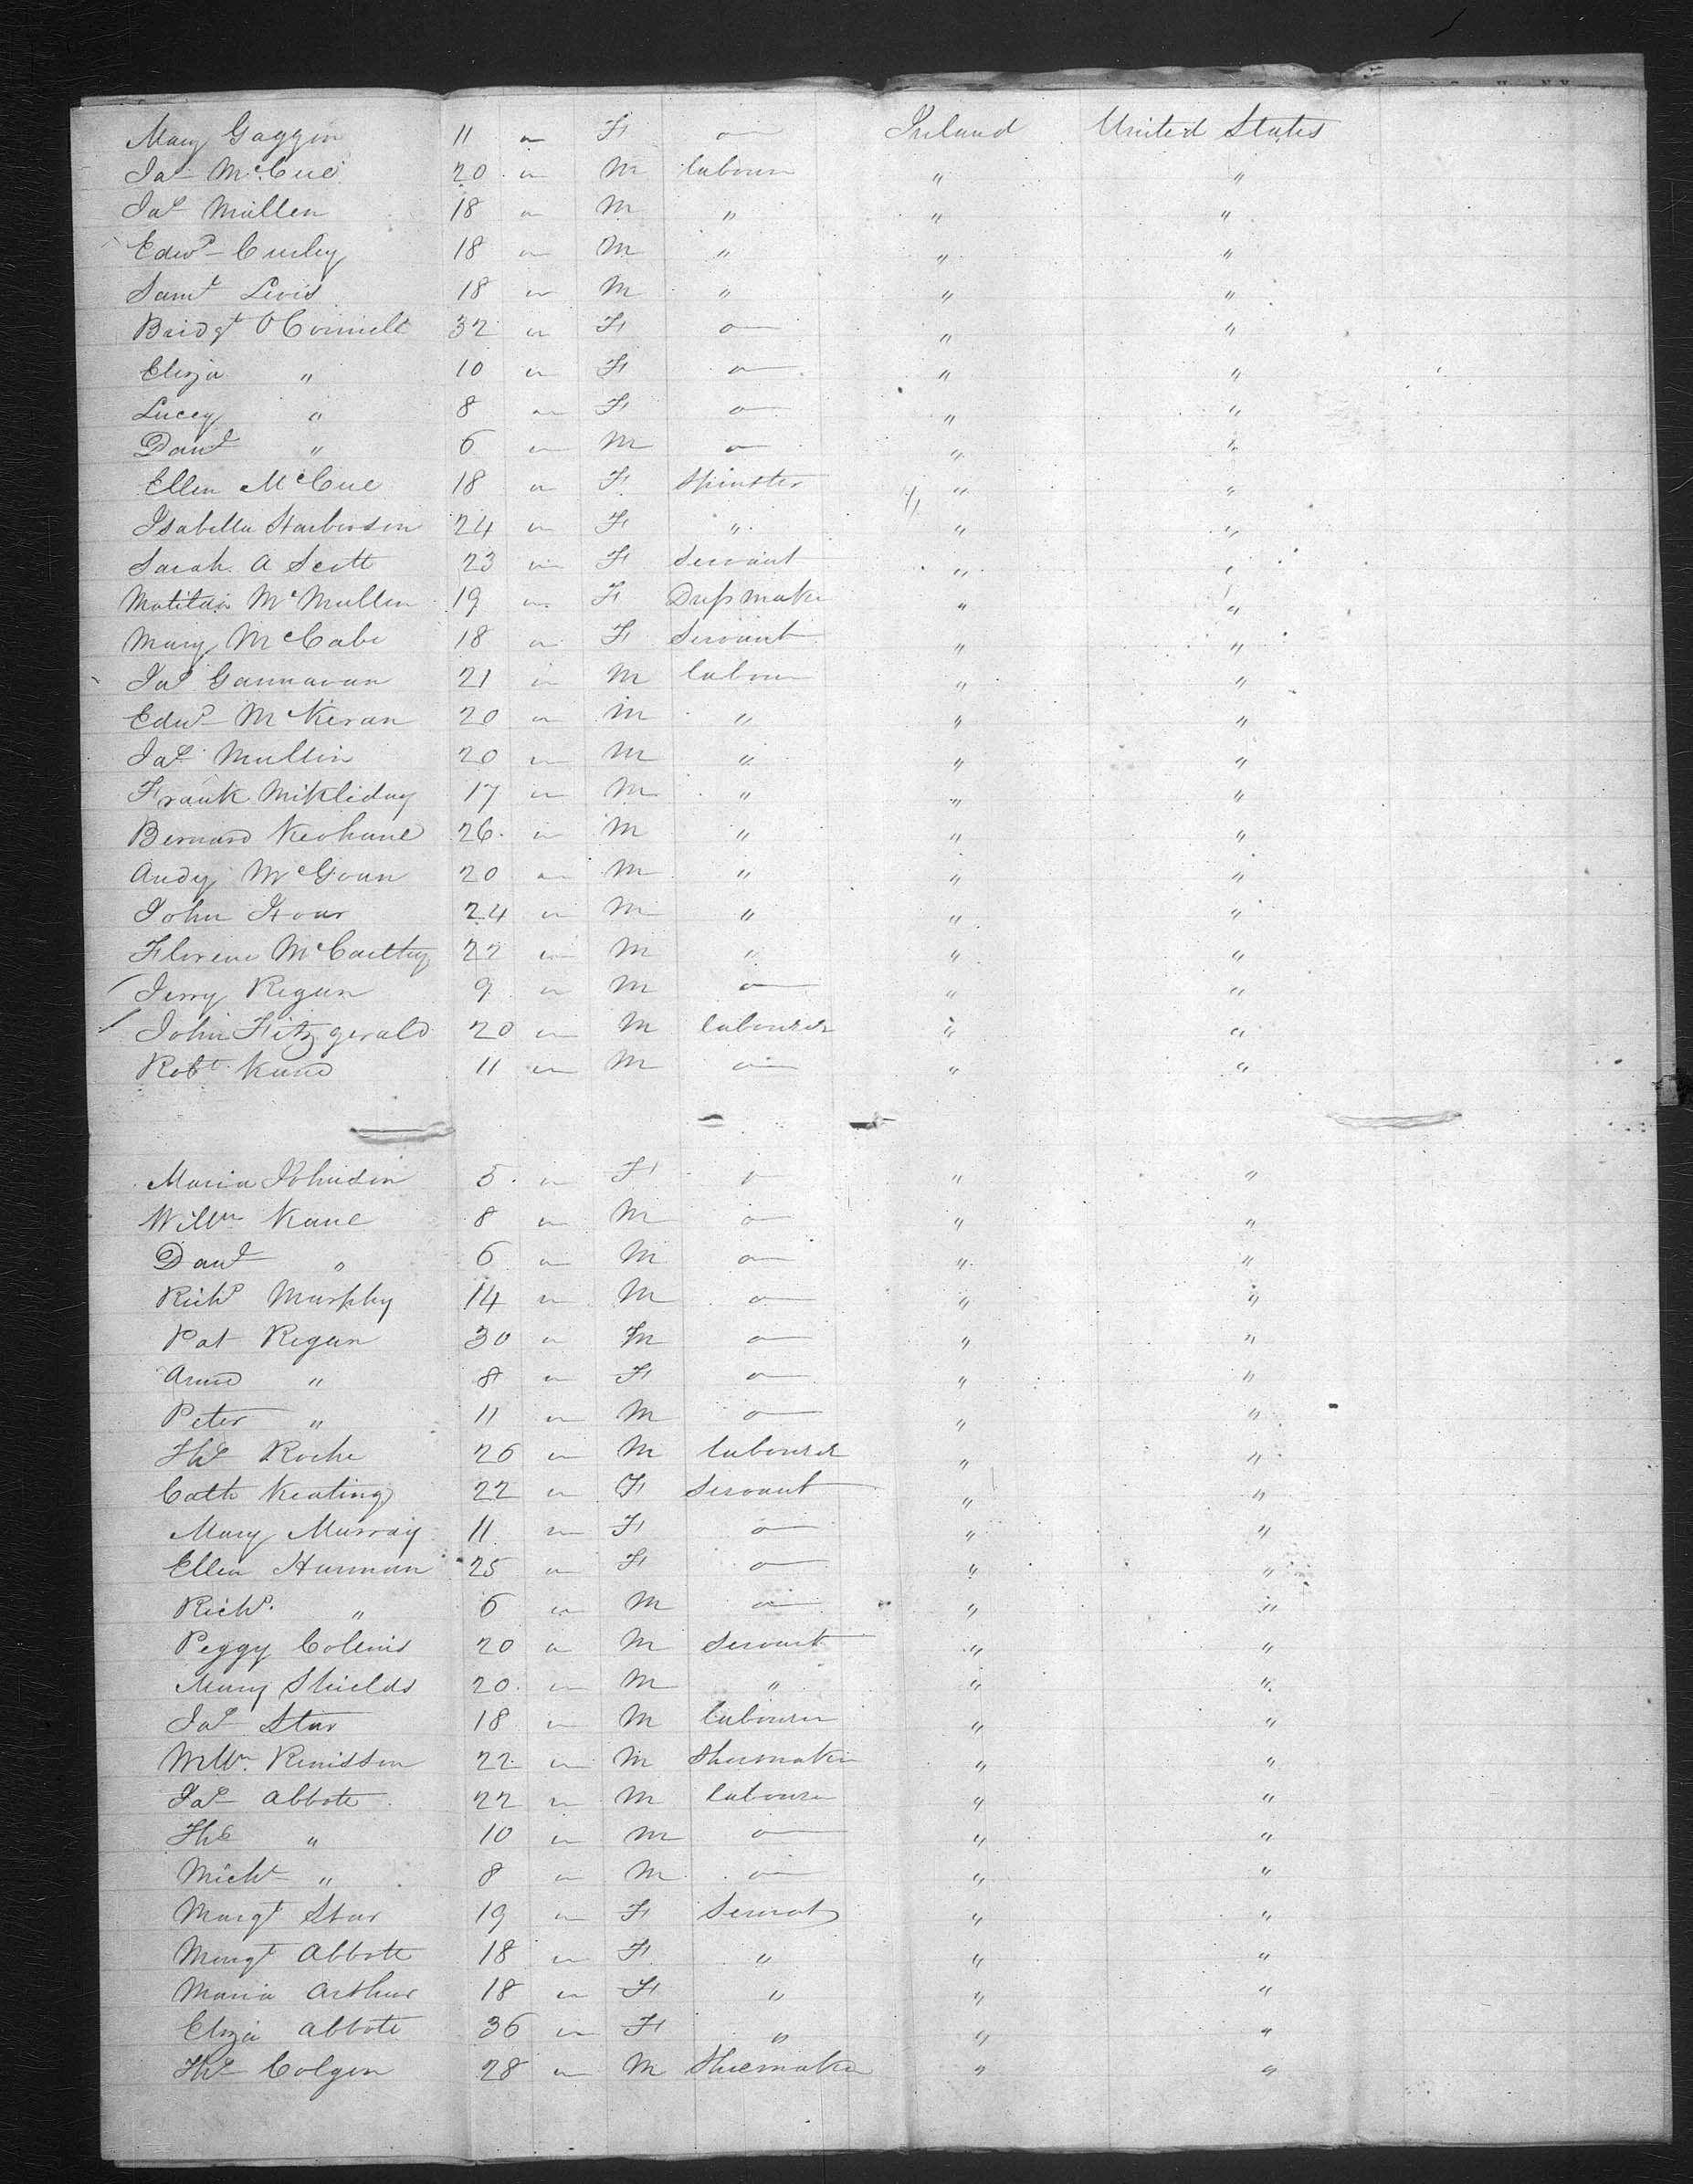 Mary Gaggin 11 F Ireland United States
Jas McCue 20 M labour " "
Jas Mullen 18 M " " "
Edwd Curley 18 M " " "
Saml Levis 18 M " " "
Bridgt O Connell 32 F " "
Eliza " 10 F " "
Lucey " 8 F " "
Danl " 6 M " "
Ellen McCue 18 F Spinster " "
Isabella Harbison 24 F " " "
Sarah A Scott 23 F Servant " "
Matilda McMullen 19 F Dressmaker " "
Mary McCabe 18 F Servant " "
Jas Gannavan 21 M labour " "
Edwd McKeran 20 M " " "
Jas Mullin 20 M " " "
Frank 17 M " " "
Bernard Keohane 26 M " " "
Andy McGoun 20 M " " "
John Hour 24 M " " "
Florence McCarthy 22 M " " "
Jerry Regan 9 M " "
John Fitzgerald 20 M labourer " "
Robt Kane 11 M " "
Maria Johnson 5 F " "
Willm Kane 8 M " "
Danl " 6 M " "
Richd Murphy 14 M " "
Pat Regan 30 M " "
Anne " 8 F " "
Peter " 11 M " "
Ths Roche 26 M labourer " "
Cath Keating 22 F Servant " "
Mary Murray 11 F " "
Ellen Hannan 25 F " "
Richd " 6 M " "
Peggy Collins 20 M Servant " "
Mary Shields 20 M " " "
Jas Star 18 M labourer " "
Willm Renisson 22 M Shoemaker " "
Jas Abbott 22 M labourer " "
Ths " 10 M " "
Michl " 8 M " "
Margt Star 19 F Servant " "
Margt Abbott 18 F " " "
Maria Arthur 18 F " " "
Eliza Abbott 36 F " " "
Ths Colgan 28 M Shoemaker " "